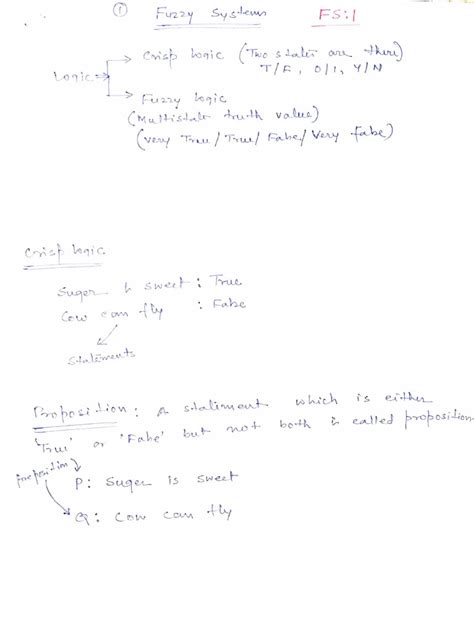 ① Fuzzy Systems FS:1
Logic → Crisp logic (Two states are there)
T/F, 0/1, Y/N
→ Fuzzy logic
(Multistate truth value)
(very True / True / False / Very false)
Crisp Logic
Suger is sweet : True
Cow can fly : False
Statements
Proposition : A statiment which is either
'True' or 'False' but not both is called proposition
proposition
P: Suger is sweet
Q: Cow can fly